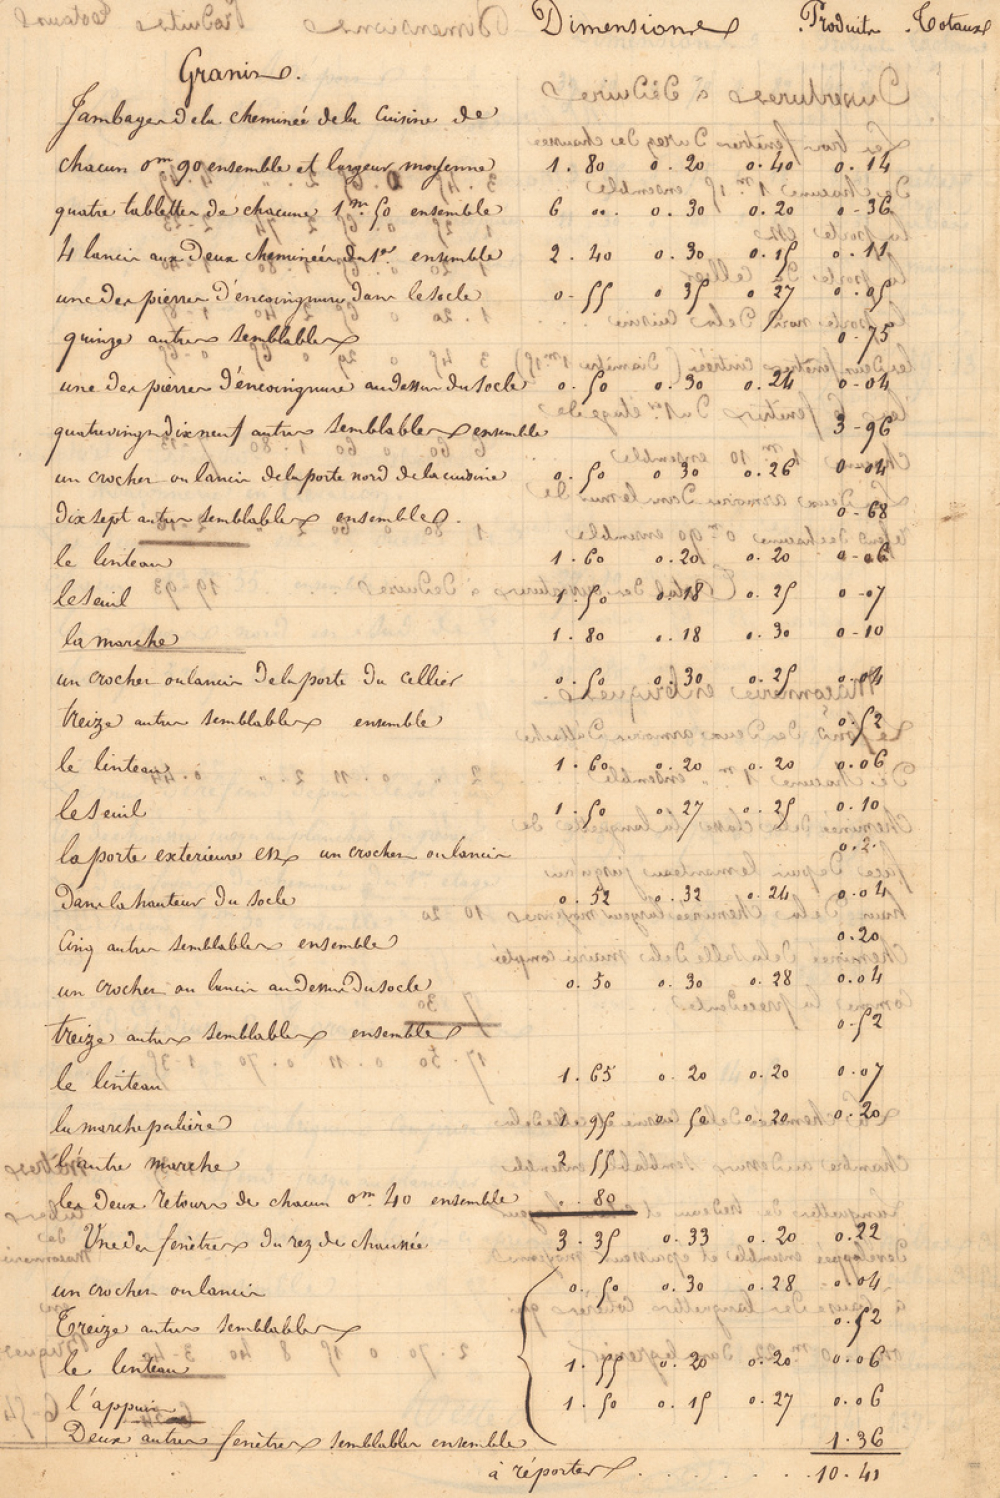 Dimensions Produits Totaux
Granis.
Jambages de la cheminée de la Cuisine de
chacun 0m 90 ensemble et largeur moyenne 1.80 0.20 0.40 0.14
quatre tablettes de chacune 1m 50 ensemble 6 ,, 0.30 0.20 0-36
4 lancis aux deux cheminées du 1er ensemble 2.40 0.30 0.15 0.11
une des pierres d'encoignure dans le socle 0-55 0 35 0.27 0.05
quinze autres semblables 0-75
une des pierres d'encoignure au dessus du socle 0.50 0.30 0.24 0-04
quatrevingt dix neuf autres semblables ensemble 3-96
un crochet ou lancis de la porte nord de la cuisine 0.50 0 30 0.26 0-04
Dix sept autres semblables ensembles. 0-68
le linteau 1.60 0.20 0.20 0-06
le Seuil 1.50 0.18 0.25 0-07
la marche 1.80 0.18 0.30 0-10
un crochet ou lancis de la porte du Cellier 0.50 0.30 0.25 0.04
treize autres semblables ensemble 0.52
le linteau 1.60 0.20 0.20 0.06
le Seuil 1.50 0.27 0.25 0.10
la porte exterieure est un crochet ou lancis 0.2.
Dans la hauteur du socle 0.52 0.32 0.24 0.04
Cinq autres semblables ensemble 0.20
un crochet ou lancis au dessus du socle 0.50 0.30 0.28 0.04
treize autres semblables ensemble 0.52
le linteau 1.65 0.20 0.20 0.07
la marche palière 1 95 0.50 0.20 0.20
l'autre marche 2 55
les Deux retours de chacun 0m 40 ensemble 0.80
3.35 0.33 0.20 0.22
Une des fenêtres du rez de chaussée
un crochet ou lancis 0.50 0.30 0.28 0.04
Treize autres semblables 0.52
le linteau 1.55 0.20 0.20 0.06
l'appuis 1.50 0.15 0.27 0.06
Deux autres fenêtres semblables ensemble 1.36
à réporter . . . . . . 10.41